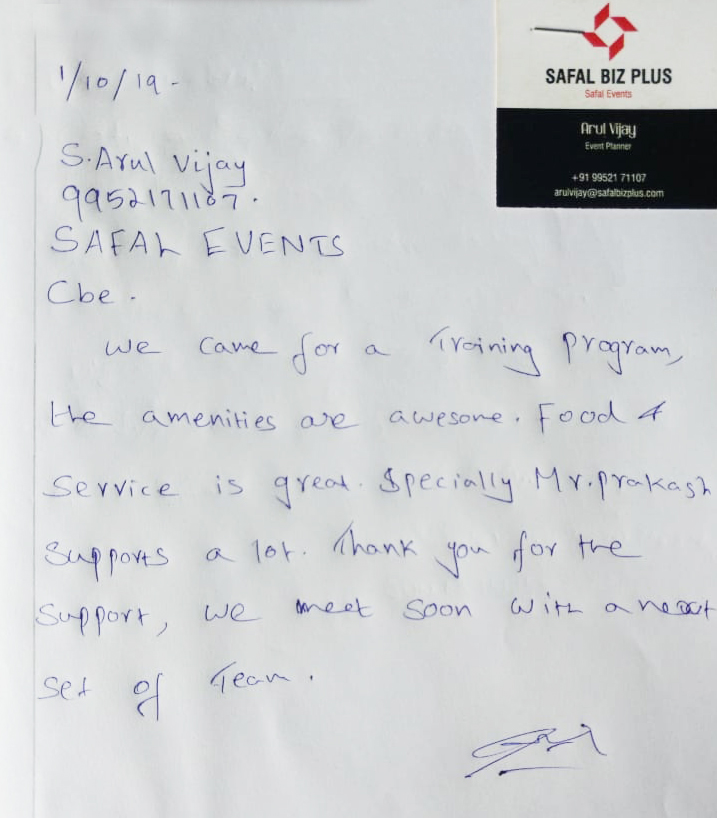 1/10/19 -
SAFAL BIZ PLUS
Safal Events
Arul Vijay
Event Planner
+91 99521 71107
arulvijay@safalbizplus.com
S. Arul Vijay
9952171107.
SAFAL EVENTS
Cbe.
we came for a Training program,
the amenities are awesome. Food &
Service is great. Specially Mr. prakash
supports a lot. Thank you for the
support, we meet soon with a next
set of Team.